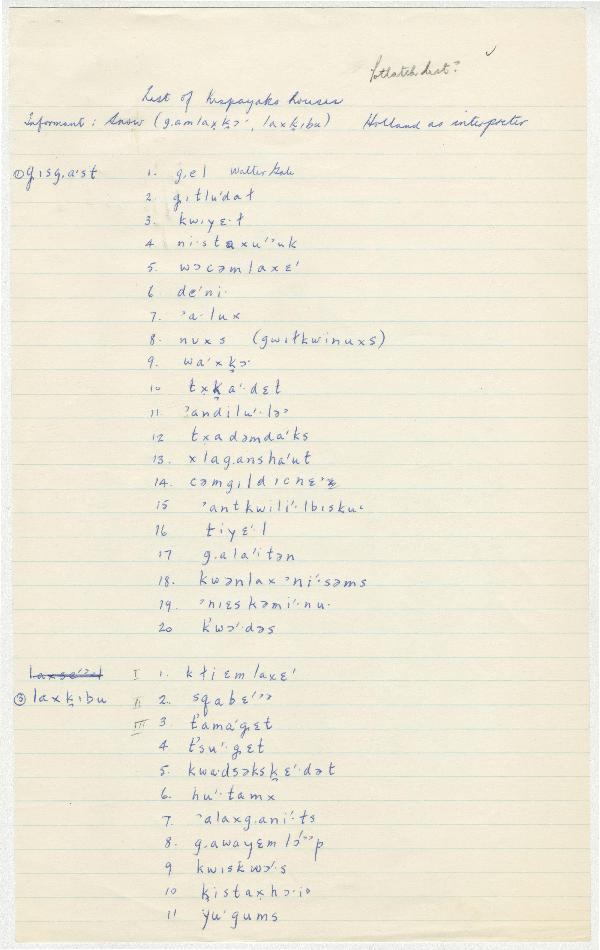 Potlatch List?
List of Kispayaks houses
Informant: Snow (g.amlaxḳɔ·, laxḳıbu) Holland as interpreter
① gısg.a·st 1. g.el Walter Gale
2. g.ıtlu'dał
3. kwıyɛ·t
4 ni·staxu''uk
5. wɔcəmlaxɛ'
6 de'ni·
7. 'a·lux
8. nuxs (gwıłkwinuxs)
9. wa'xḳɔ·
10 txḳa'·dɛt
11. 'andilu'·lə'
12 txadəmda'ks
13. xlag.ansha'ut
14. cəmgıldıcnɛ'x̱
15 'antkwili'·lbısku·
16 tiyɛ'·l
17 g.ala'itən
18. kwənlax'ni'·səms
19. 'nıɛskəmi'·nu·
20 k'wɔ'·dəs
② laxḳıbu I 1. kłiemlaxɛ'
II 2. sqabɛ''ɔ
III 3 t'ama'g.ɛt
4 t'su'·g.ɛt
5. kwa·dsəksḳɛ'·dət
6. hu'·tamx
7. 'alaxg.ani'·ts
8. g.awayɛmlɔ'''p
9 kwıskwɔ'·s
10 ḳistaxhɔ·iɔ
11 yu'gums